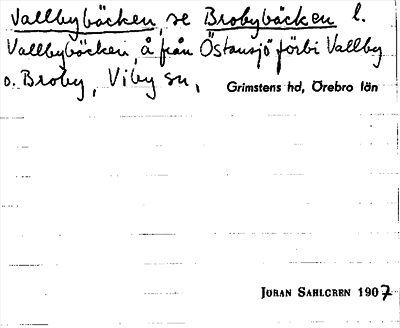 Vallbybäcken, se Brobybäcken l.
Vallbybäcken, å från Östansjö förbi Vallby
o. Broby, Viby sn,
Grimstens hd, Örebro län
JÖRAN SAHLGREN 1907